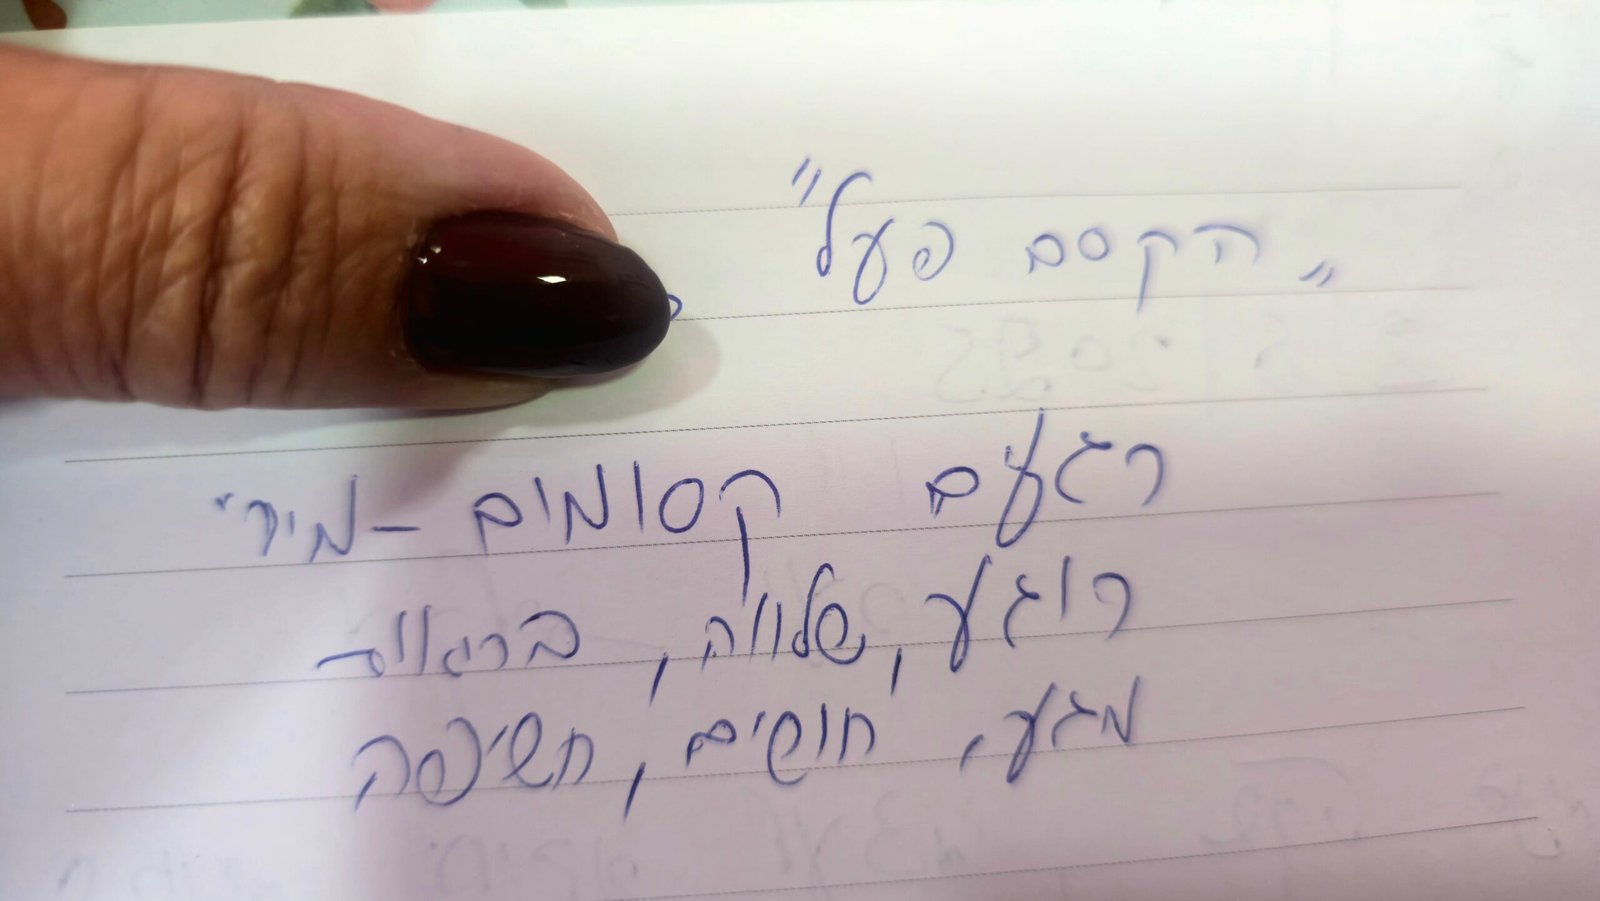 "הקסם פעל"
רגעם קסומים - מיר"
רוגע, שלווה, בריאות
מגע, חושים, חשיפה